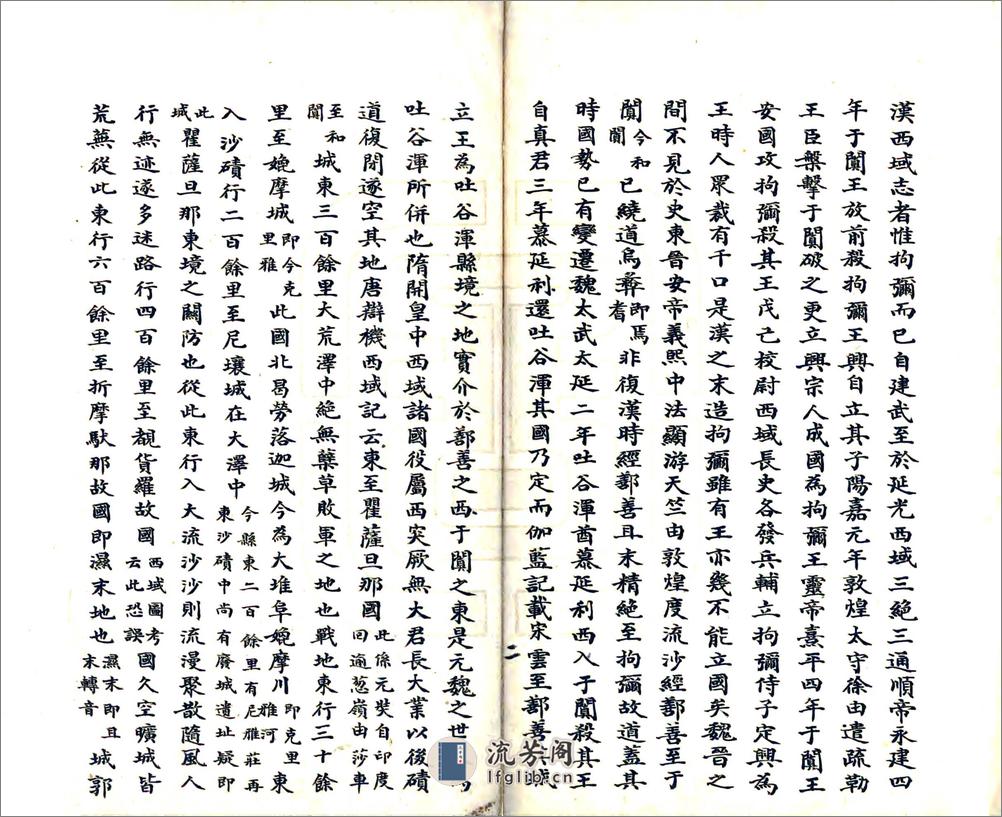 漢西域志者惟拘彌而已自建武至於延光西域三絕三通順帝永建四
年于闐王放前殺拘彌王興自立其子陽嘉元年敦煌太守徐由遣疏勒
王臣槃擊于闐破之更立興宗人成國為拘彌王靈帝熹平四年于闐王
安國攻拘彌殺其王戊己校尉西域長史各發兵輔立拘彌侍子定興為
王時人眾裁有千口是漢之末造拘彌雖有王亦幾不能立國矣魏晉之
間不見於史東晉安帝義熙中法顯游天竺由敦煌度流沙經鄯善至于
闐今和闐已繞道烏彝即焉耆非復漢時經鄯善且末精絕至拘彌故道蓋其
時國勢已有變遷魏太武太延二年吐谷渾酋慕延利西入于闐殺其王
自真君三年慕延利還吐谷渾其國乃定而伽藍記載宋雲至鄯善城
二
立王為吐谷渾縣境之地實介於鄯善之西于闐之東是元魏之世為
吐谷渾所併也隋開皇中西域諸國役屬西突厥無大君長大業以後磧
道復閉遂空其地唐辯機西域記云東至瞿薩旦那國此係元奘自印度回逾葱嶺由莎車
至和闐城東三百餘里大荒澤中絕無蘗草敗軍之地也戰地東行三十餘
里至媲摩城即今克里雅此國北曷勞落迦城今為大堆阜媲摩川即克里雅河東
入沙磧行二百餘里至尼壤城在大澤中今縣東二百餘里有尼雅莊再東沙磧中尚有廢城遺址疑即
此城瞿薩旦那東境之關防也從此東行入大流沙沙則流漫聚散隨風人
行無迹遂多迷路行四百餘里至覩貨羅故國西域圖考云此恐誤國久空曠城皆
荒蕪從此東行六百餘里至折摩馱那故國即濕末地也濕末即且末轉音城郭
流芳阁
lfglib@xxx.cn